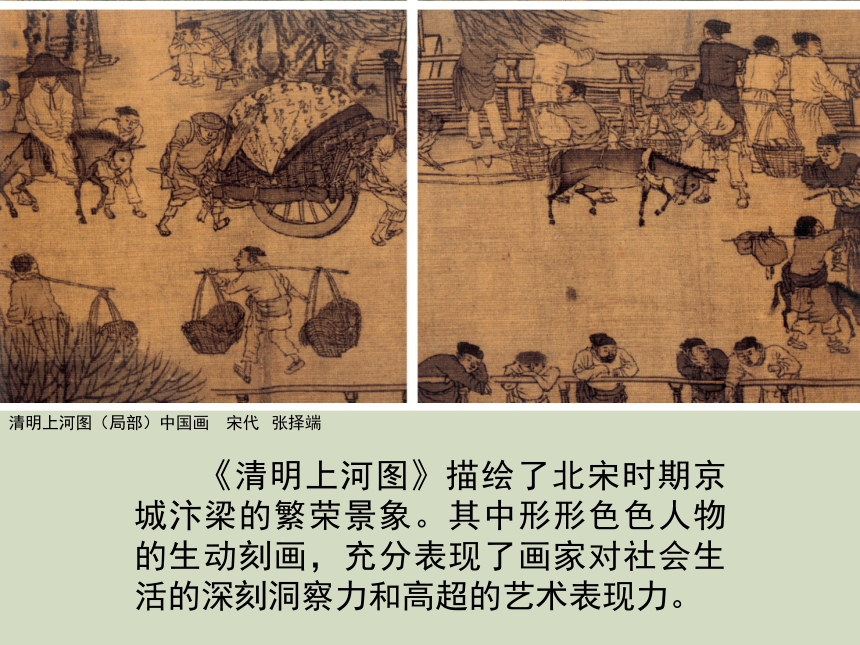 清明上河图（局部）中国画 宋代 张择端
《清明上河图》描绘了北宋时期京
城汴梁的繁荣景象。其中形形色色人物
的生动刻画，充分表现了画家对社会生
活的深刻洞察力和高超的艺术表现力。